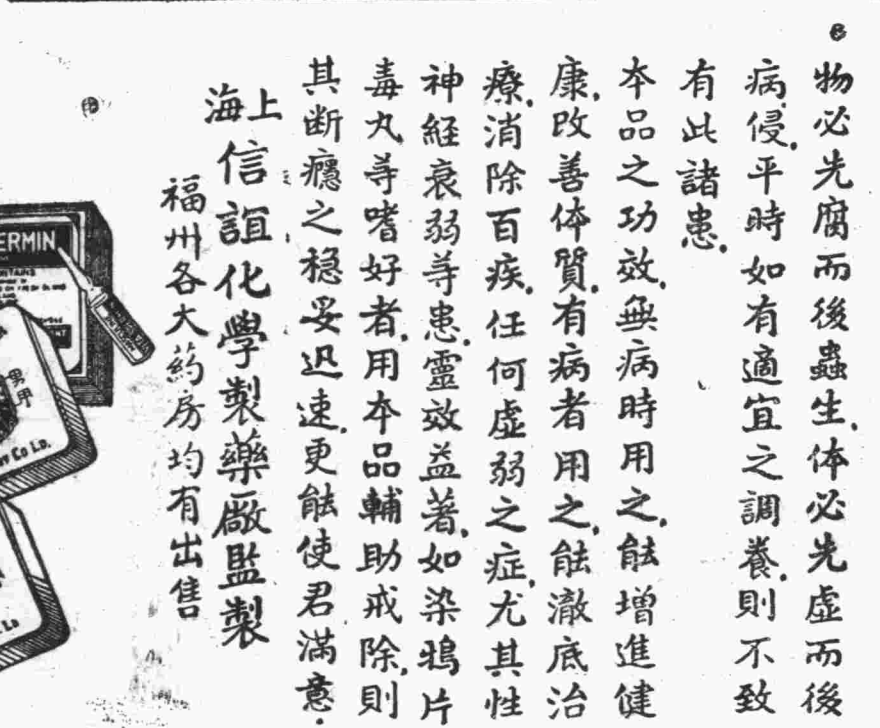 物必先腐而後蟲生.体必先虛而後
病侵.平時如有適宜之調養.則不致
有此諸患.
本品之功效.無病時用之.能增進健
康.改善体質.有病者用之.能澈底治
療.消除百疾.任何虛弱之症.尤其性
神経衰弱等患.靈效益著.如染鴉片
毒丸等嗜好者.用本品輔助戒除.則
其断癮之稳妥迅速.更能使君滿意.
上海
信誼化學製藥廠監製
福州各大药房均有出售
ERMIN
男用
Co Ld.